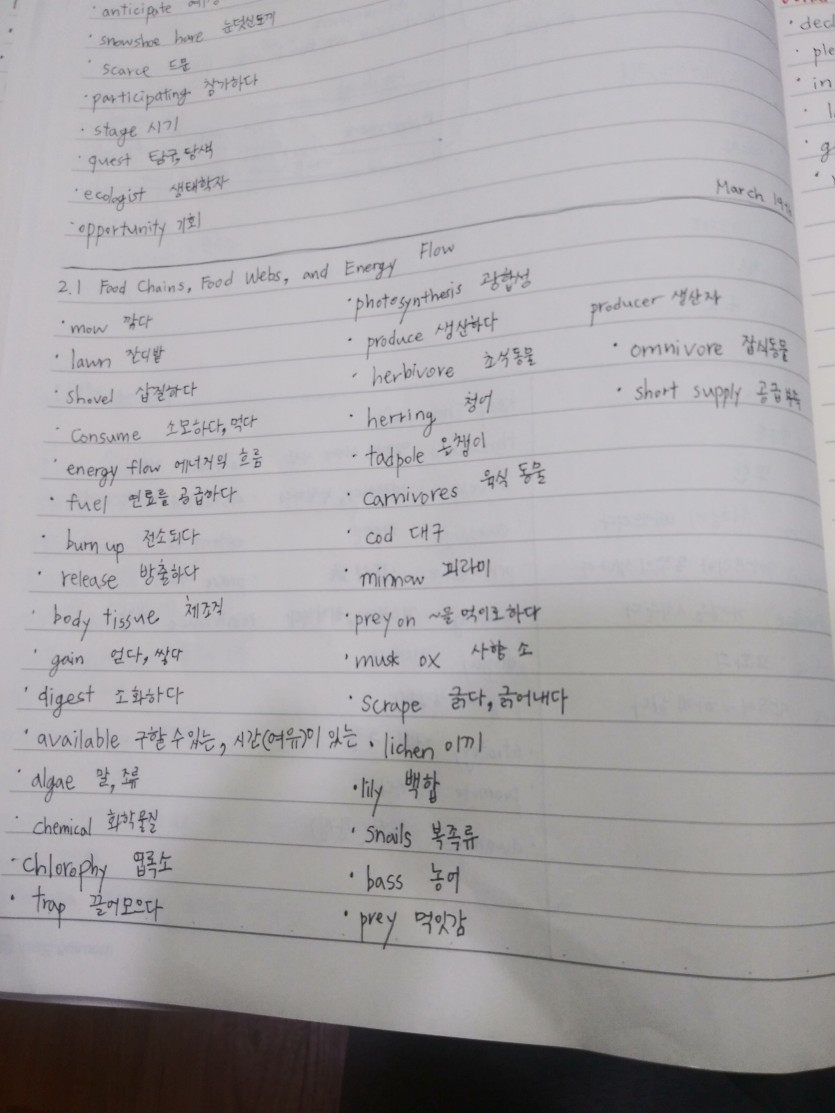 · anticipate
· snowshoe hare 눈덧신토끼
· scarce 드문
· participating 참가하다
· stage 시기
· quest 탐구, 탐색
· ecologist 생태학자
· opportunity 기회
March
2.1 Food Chains, Food Webs, and Energy Flow
· mow 깎다
· lawn 잔디밭
· shovel 삽질하다
· Consume 소모하다, 먹다
· energy flow 에너지의 흐름
· fuel 연료를 공급하다
· burn up 전소되다
· release 방출하다
· body tissue 체조직
· gain 얻다, 쌓다
· digest 소화하다
· available 구할 수 있는, 시간(여유)이 있는
· algae 말, 조류
· chemical 화학물질
· chlorophy 엽록소
· trap 끌어모으다
· photosynthesis 광합성
· produce 생산하다
· herbivore 초식동물
· herring 청어
· tadpole 올챙이
· carnivores 육식 동물
· cod 대구
· minnow 피라미
· prey on ~을 먹이로 하다
· musk ox 사향 소
· Scrape 긁다, 긁어내다
· lichen 이끼
· lily 백합
· Snails 복족류
· bass 농어
· prey 먹잇감
producer 생산자
· omnivore 잡식동물
· short supply 공급
· decl
· ple
· in